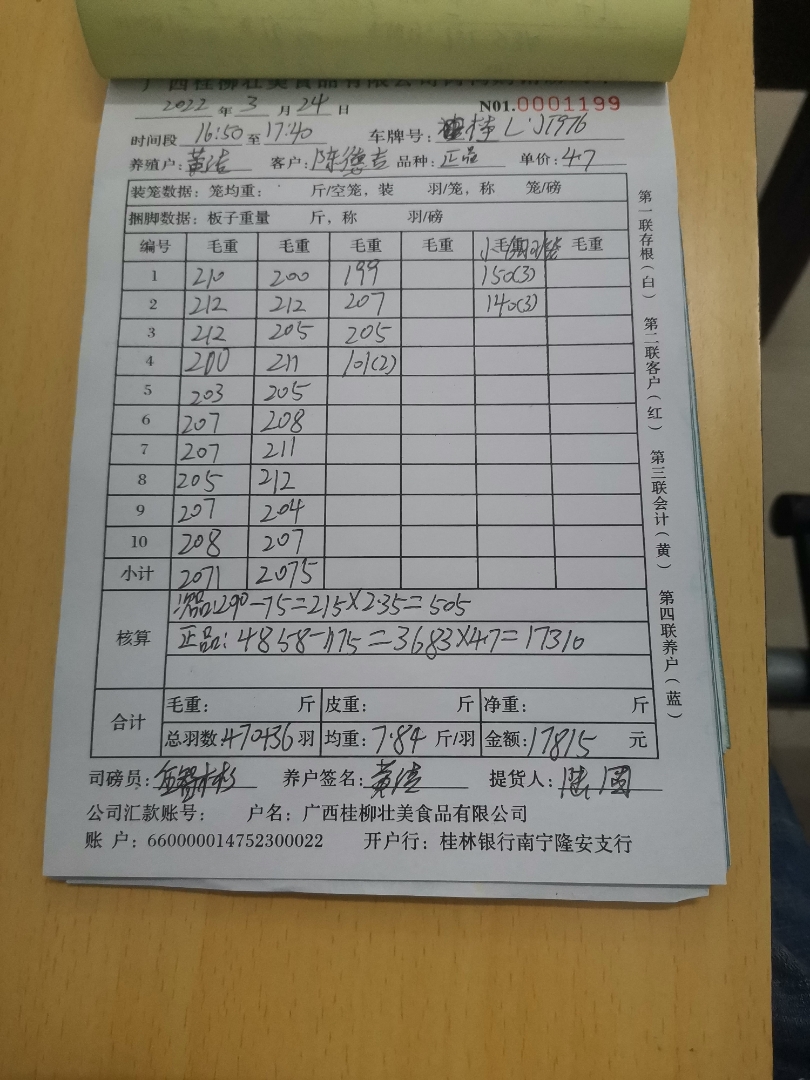 2022 年 3 月 24 日 N01.0001199
时间段 16:50 至 17:40 车牌号: 桂L·JT976
养殖户: 黄洁 客户: 陈德吉 品种: 正品 单价: 4.7
装笼数据: 笼均重: 斤/空笼, 装 羽/笼, 称 笼/磅
捆脚数据: 板子重量 斤, 称 羽/磅
编号 毛重 毛重 毛重 毛重 小毛 毛重
1 210 200 199 150(3)
2 212 212 207 140(3)
3 212 205 205
4 200 211 101(2)
5 203 205
6 207 208
7 207 211
8 205 212
9 207 204
10 208 207
小计 2071 2075
核算
290-75=215×2.35=505
正品: 4858-1175=3683×4.7=17310
合计
毛重: 斤 皮重: 斤 净重: 斤
总羽数: 470+36 羽 均重: 7.84 斤/羽 金额: 17815 元
司磅员: 养户签名: 黄洁 提货人:
公司汇款账号: 户名: 广西桂柳壮美食品有限公司
账 户: 660000014752300022 开户行: 桂林银行南宁隆安支行
第一联存根(白) 第二联客户(红) 第三联会计(黄) 第四联养户(蓝)